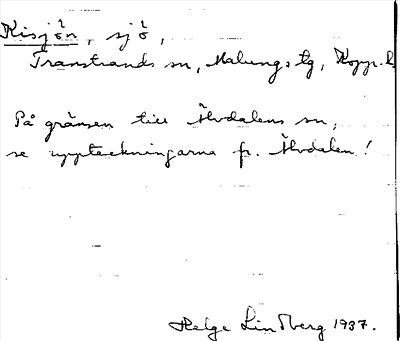 Kisjön, sjö,
Transtrands sn, Malungs tg, Kopp. l.
På gränsen till Älvdalens sn,
se uppteckningarna fr. Älvdalen!
Helge Lindberg 1937.